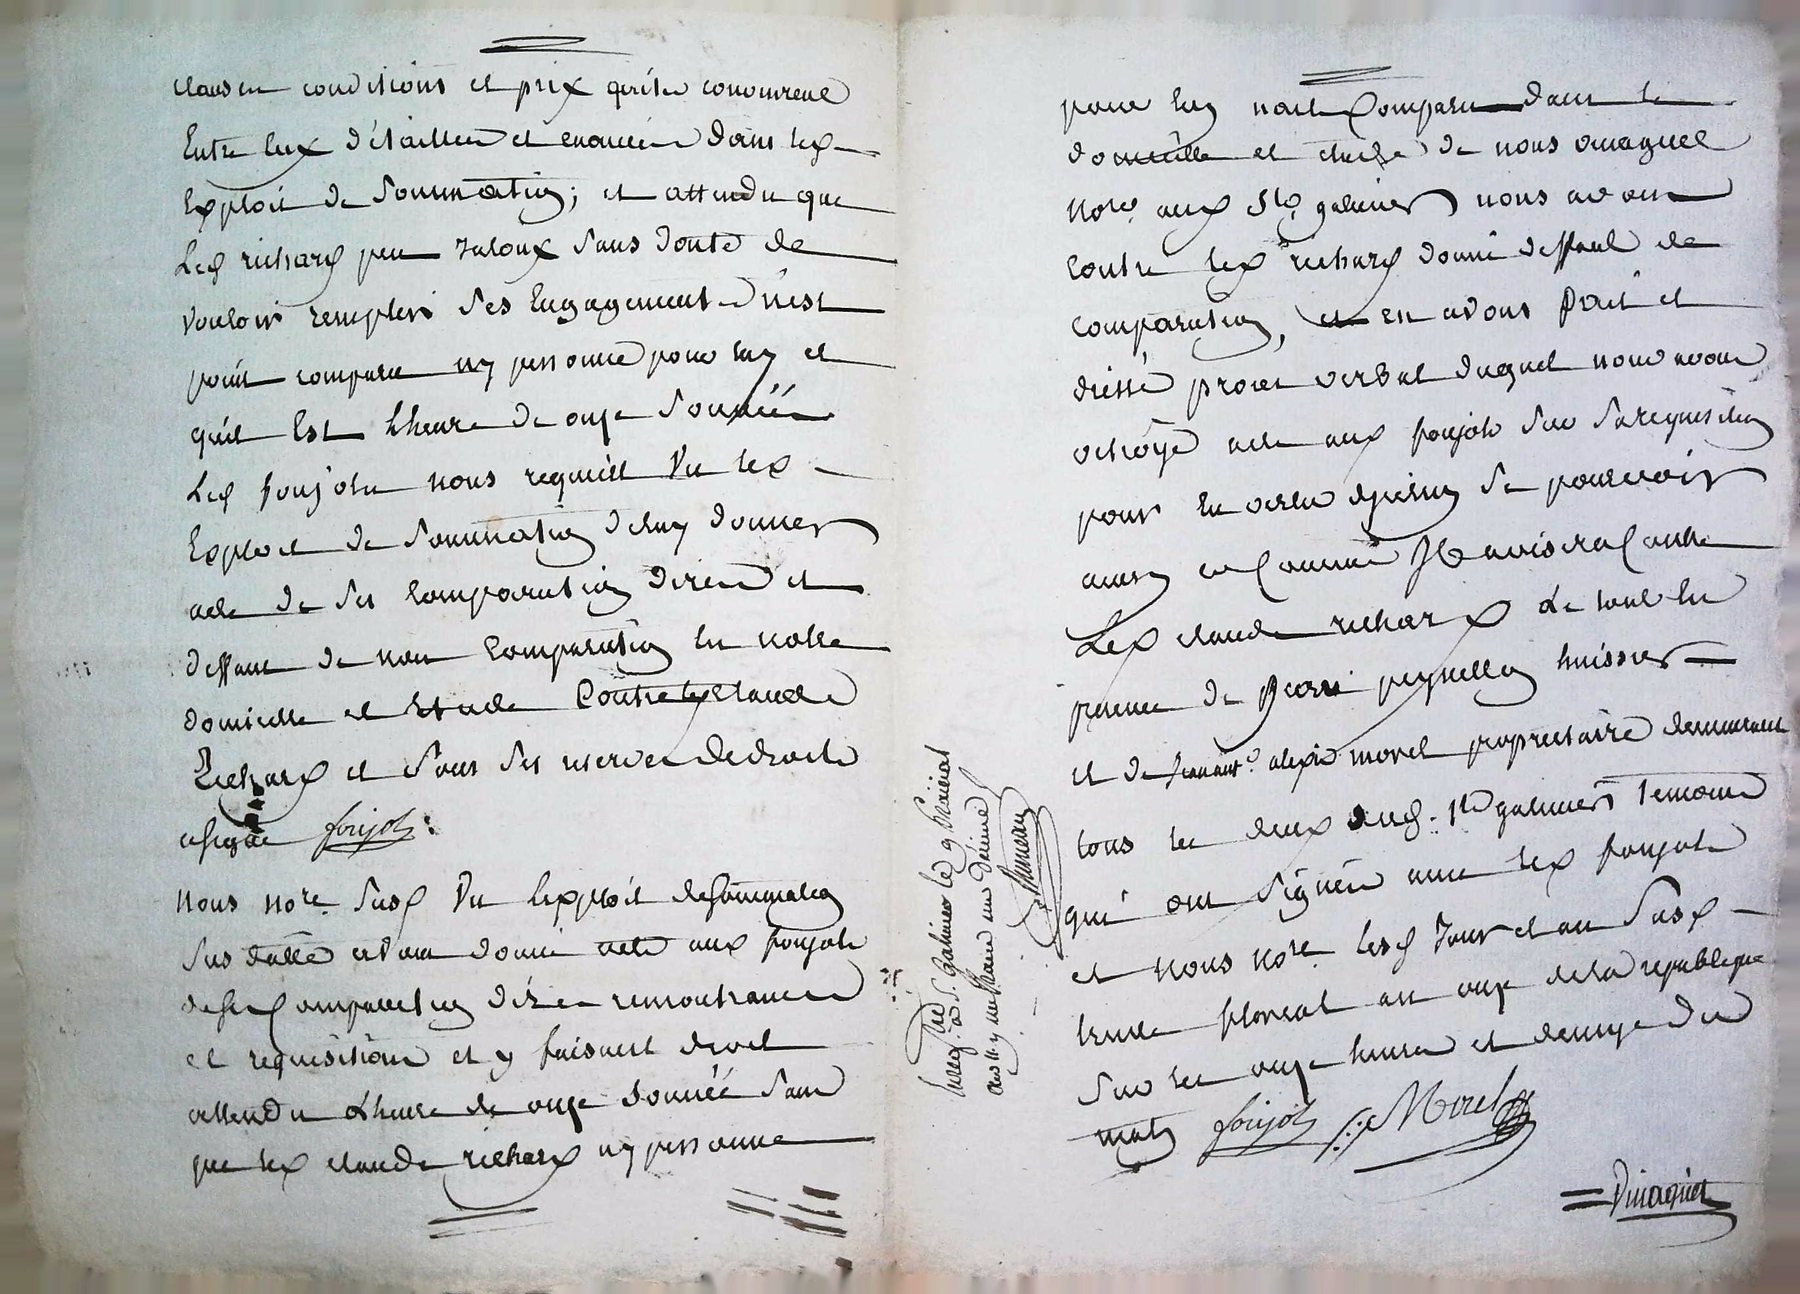 clauses conditions et prix qu'ils convinrent
Entre Eux détaillés et enoncés dans led
Exploit de Sommation; et attendu que
Led richard peu Jaloux sans doute de
vouloir remplir ses Engagements n'est
point comparu ny personne pour luy et
qu'il Est l'heure de onze sonnée
Led foujols nous requiert Vu led
Exploit de Sommation de luy donner
acte de ses comparution dires et
deffaut de non Comparution en notre
domicille et Etude Contre led Claude
Richard et sous ses reserves de droits
a signé foujols
Nous nore. susd Vu l'exploit de sommation
sus datté avons donné acte aux foujols
de ses Comparution dires remontrances
et requisitions et y faisant droit
attendu L'heure de onze sonnée sans
que led claude richard ny personne
pour luy nait Comparu dans le
domicille et etude de nous
Nore. aux St. galmier nous avons
contre led richard donné deffaut de
comparution, et en avons fait et
dressé procès verbal duquel nous avons
octroyé acte aux foujols sur sa requisition
pour en vertu dyceluy se pourvoir
ainsy et Comme Il avisera Contre
Led claude richard Le tout En
presence de pierre huissier
et de alexis morel propriétaire demeurant
tous les deux aud. St galmier Temoins
qui ont Signés avec led foujols
et Nous Nore. Lesd Jour et an Susd
trente floreal an onze de la republique
sur les onze heures et demye du
matin foujols Morel
Enreg. à St. Galmier le 9 prairial
an 11. un franc un décime